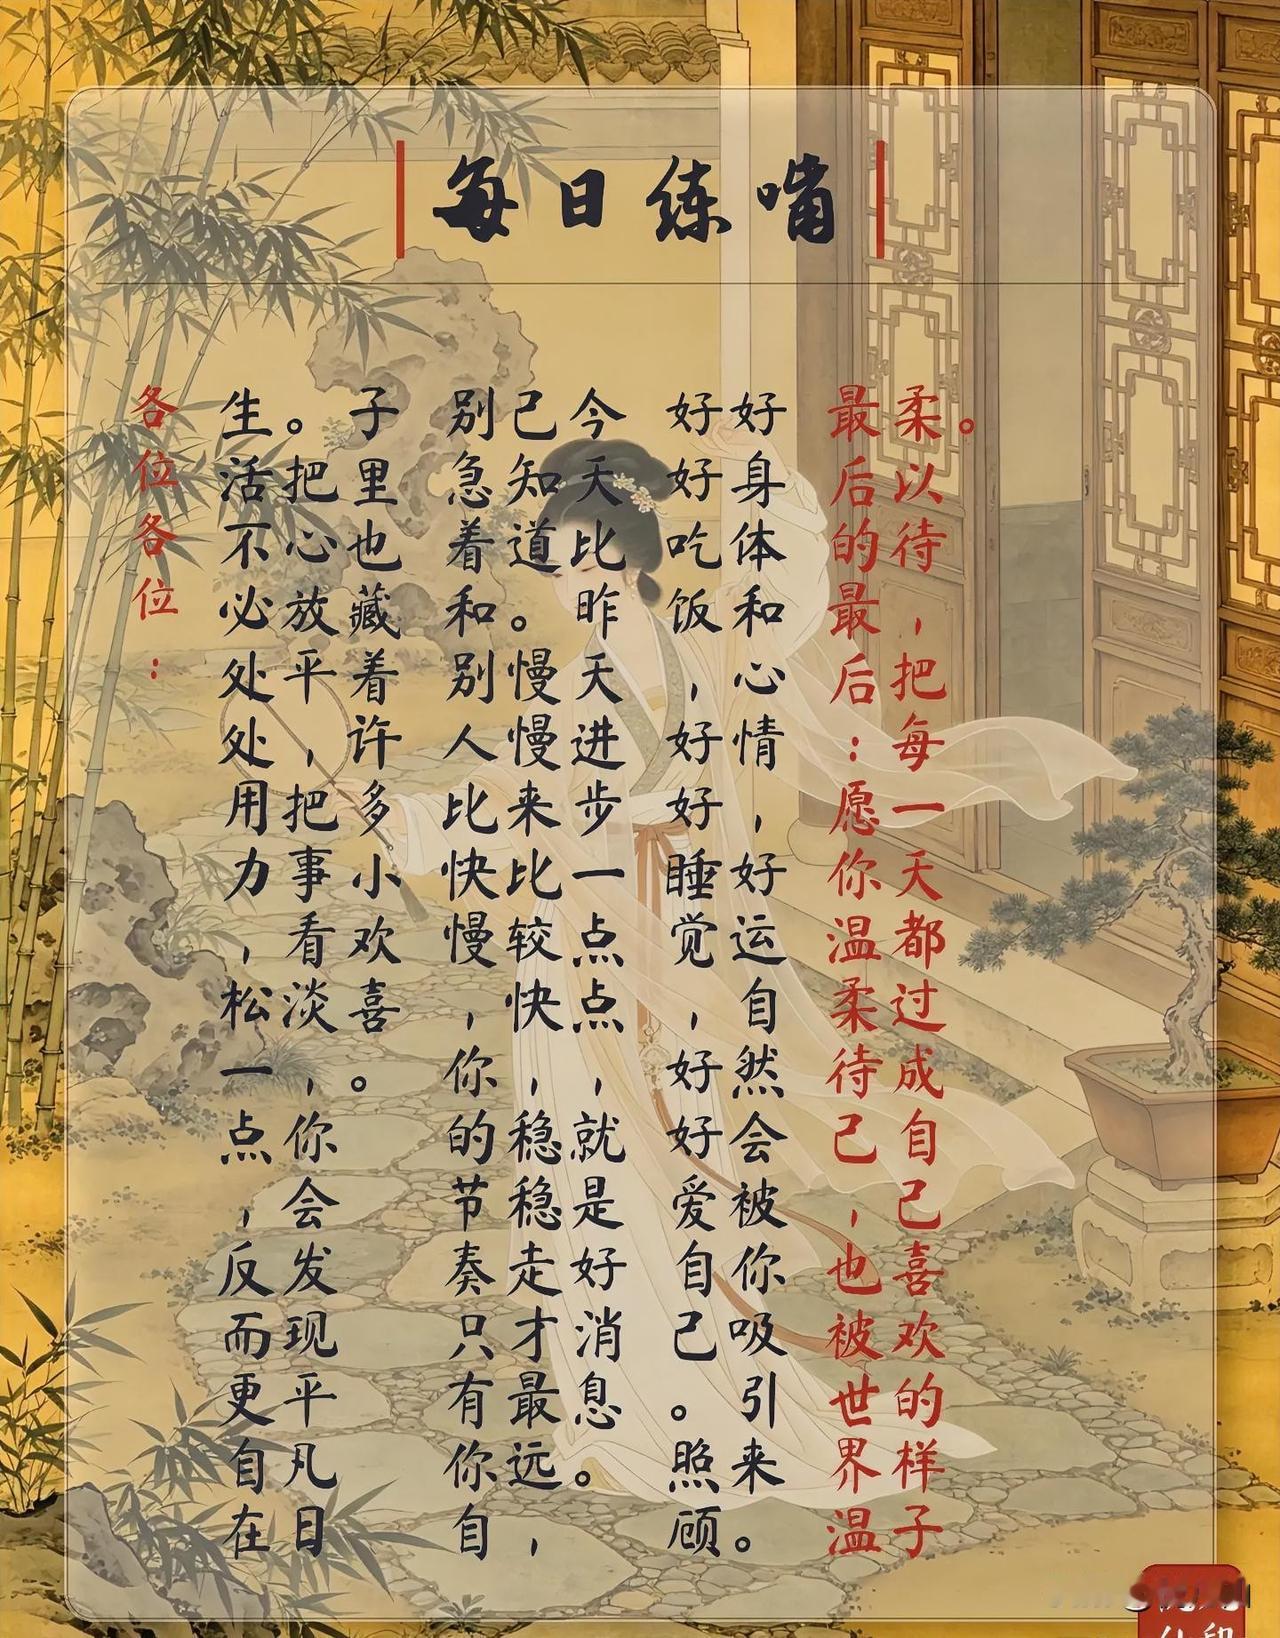 每日练嘴
各位各位：
生活不必处处用力，松一点，反而更自在
。把心放平，把事看淡，你会发现平凡日
子里也藏着许多小欢喜。
别急着和别人比快慢，你的节奏只有你自
己知道。慢慢来比较快，稳稳走才最远，
今天比昨天进步一点点，就是好消息。
好好吃饭，好好睡觉，好好爱自己。照顾
好身体和心情，好运自然会被你吸引来。
最后的最后：愿你温柔待己，也被世界温
柔以待，把每一天都过成自己喜欢的样子
。